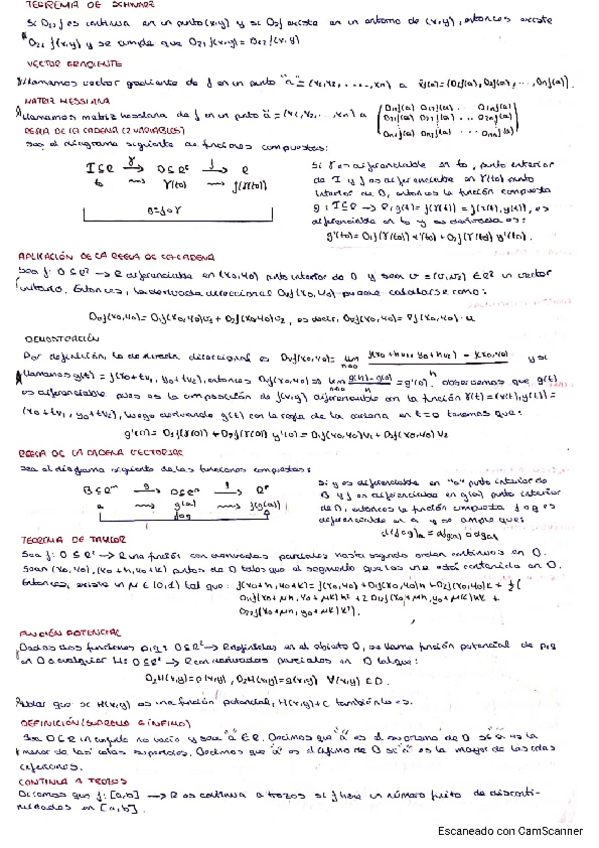 TEOREMA DE SCHWARZ
Si D₁₂ f es continua en un punto (x,y) y si D₂f existe en un entorno de (x,y), entonces existe
D₂₁ f(x,y) y se cumple que D₂₁ f(x,y) = D₁₂ f(x,y)
VECTOR GRADIENTE
Llamamos vector gradiente de f en un punto "a" = (x₁,x₂, ..., xn) a ∇f(a) = (D₁f(a), D₂f(a), ..., Dnf(a)).
MATRIZ HESSIANA
Llamamos matriz hessiana de f en un punto "a" = (x₁,x₂, ..., xn) a
REGLA DE LA CADENA (2 VARIABLES)
Sea el diagrama siguiente de funciones compuestas:
Si γ es diferenciable en t₀, punto interior
de I y f es diferenciable en γ(t₀) punto
interior de D, entonces la función compuesta
g: I⊆R → R, g(t) = f(γ(t)) = f(x(t), y(t)), es
diferenciable en t₀ y su derivada es:
I⊆R → D⊆R² → R
t₀ γ(t₀) f(γ(t₀))
g = f∘γ
APLICACIÓN DE LA REGLA DE LA CADENA
Sea f: D⊆R² → R diferenciable en (x₀,y₀) punto interior de D y sea v = (v₁,v₂) ∈ R² un vector
unitario. Entonces, la derivada direccional Dvf(x₀,y₀) puede calcularse como:
Dvf(x₀,y₀) = D₁f(x₀,y₀)v₁ + D₂f(x₀,y₀)v₂, es decir, Dvf(x₀,y₀) = ∇f(x₀,y₀) · u
DEMOSTRACIÓN
Por definición, la derivada direccional es Dvf(x₀,y₀) = lim f(x₀+hv₁, y₀+hv₂) − f(x₀,y₀) y si
llamamos g(t) = f(x₀+tv₁, y₀+tv₂), entonces Dvf(x₀,y₀) = lim g(h)−g(0) = g'(0). observamos que g(t)
es diferenciable pues es la composición de f(x,y) diferenciable con la función γ(t) = (x(t),y(t)) =
(x₀+tv₁, y₀+tv₂), luego derivando g(t) con la regla de la cadena en t=0 tenemos que:
REGLA DE LA CADENA VECTORIAL
Sea el diagrama siguiente de las funciones compuestas:
Si g es diferenciable en "a" punto interior de
B y f es diferenciable en g(a) punto interior
de D, entonces la función compuesta f∘g es
diferenciable en a y se cumple que:
a g(a) f(g(a))
f∘g
TEOREMA DE TAYLOR
Sea f: D⊆R² → R una función con derivadas parciales hasta segundo orden continuas en D.
Sean (x₀,y₀), (x₀+h, y₀+k) puntos de D tales que el segmento que los une está contenido en D.
Entonces, existe un μ ∈ (0,1) tal que: f(x₀+h, y₀+k) = f(x₀,y₀) + D₁f(x₀,y₀)h + D₂f(x₀,y₀)k + ½(
D₁₁f(x₀+μh, y₀+μk)h² + 2D₁₂f(x₀+μh, y₀+μk)hk +
D₂₂f(x₀+μh, y₀+μk)k²).
FUNCIÓN POTENCIAL
Dadas dos funciones p,q: D⊆R² → R definidas en el abierto D, se llama función potencial de p,q
en D a cualquier H: D⊆R² → R con derivadas parciales en D tal que:
D₁H(x,y) = p(x,y), D₂H(x,y) = q(x,y) ∀(x,y) ∈ D.
que si H(x,y) es una función potencial, H(x,y)+C también lo es.
DEFINICIÓN (SUPREMO E ÍNFIMO)
Sea D⊆R un conjunto no vacío y sea "a" ∈ R. Decimos que "a" es el supremo de D si "a" es la
menor de las cotas superiores. Decimos que "a" es el ínfimo de D si "a" es la mayor de las cotas
inferiores.
CONTINUA A TROZOS
Decimos que f: [a,b] → R es continua a trozos si f tiene un número finito de disconti-
nuidades en [a,b].
Escaneado con CamScanner